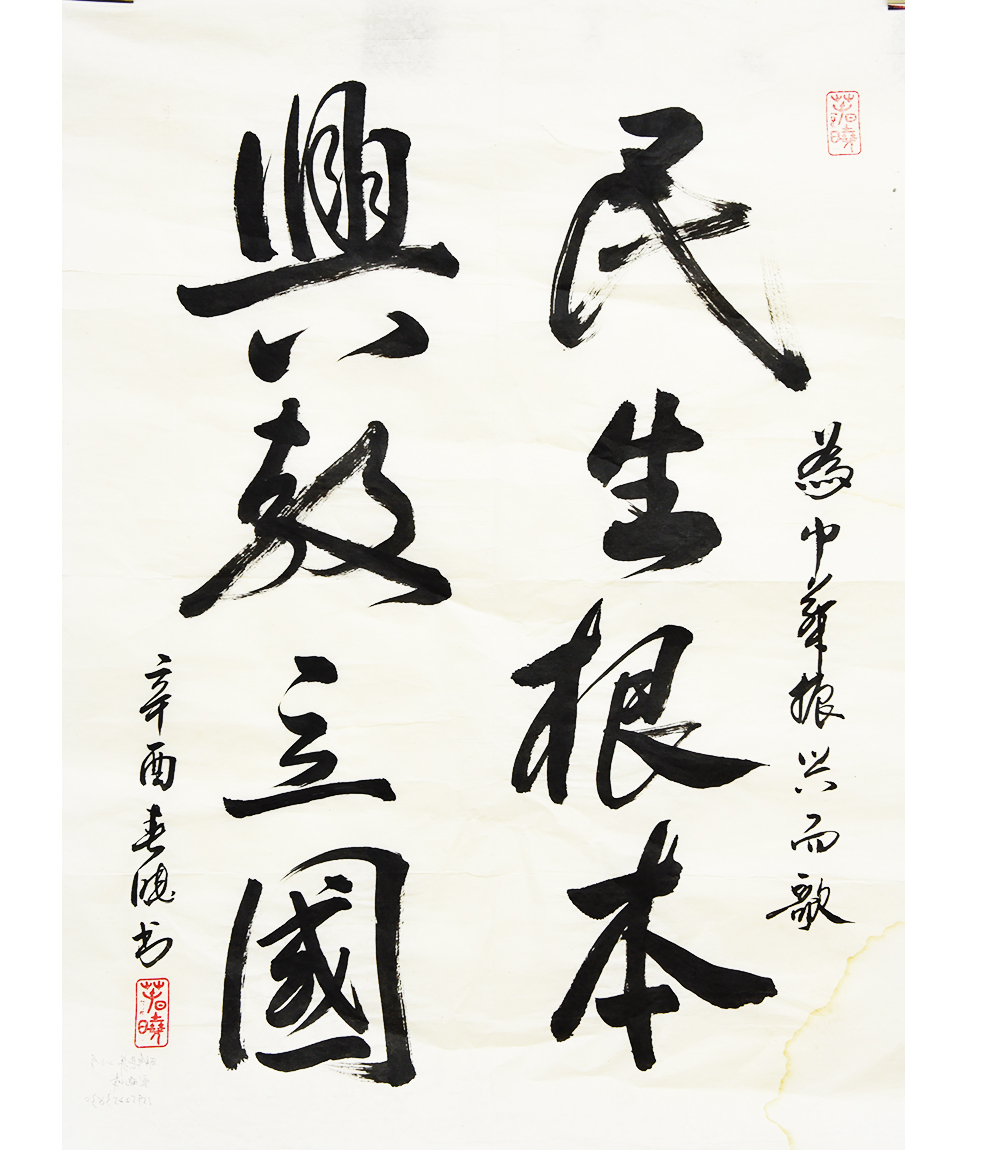 為中華振兴而歌
民生根本
興教立國
辛酉春曉书
春曉
春曉